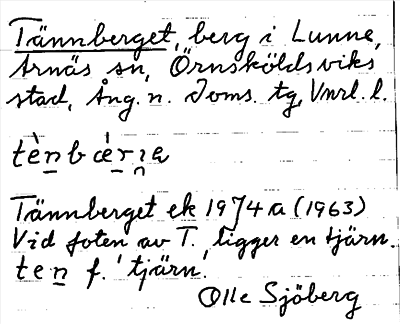 Tännberget, berg i Lunne,
Arnäs sn, Örnsköldsviks
stad, Ång. n. Doms. tg, Vnrl. l.
tè̀nbæ̀rıa
Tännberget ek 1974 a (1963)
Vid foten av T., ligger en tjärn.
ten f. 'tjärn.
Olle Sjöberg